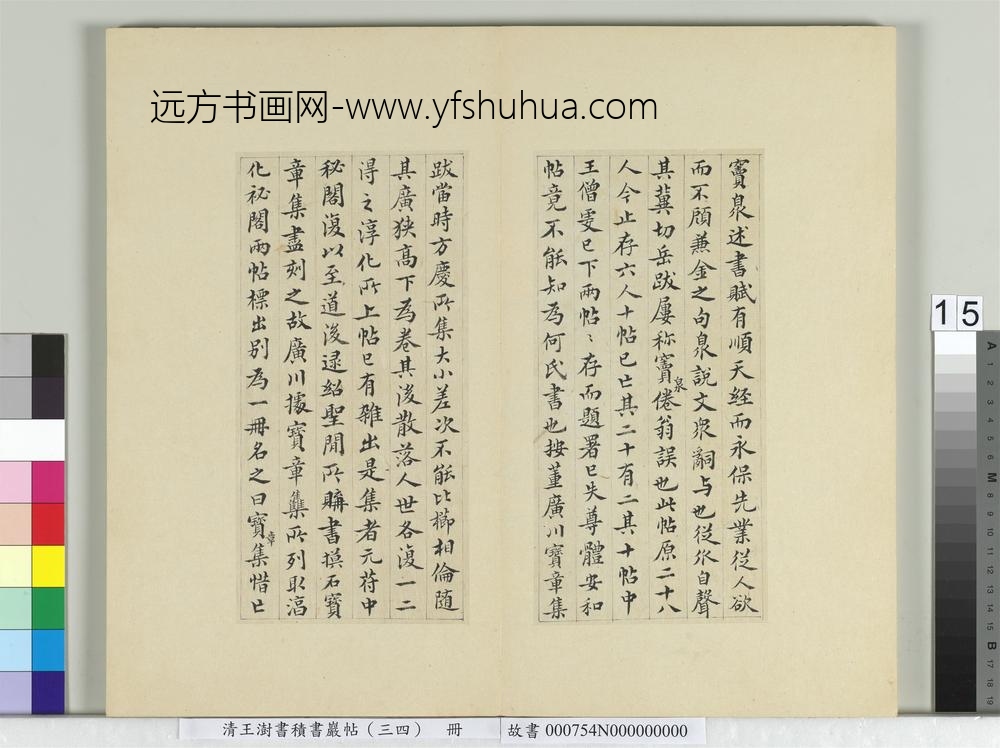 远方书画网-www.yfshuhua.com
竇臮述書賦有順天経而永保先業従人欲
而不頋兼金之句臮説文衆詞与也従㐺自聲
其冀切岳跋屢称竇臮倦翁誤也此帖原二十八
人今止存六人十帖已亡其二十有二其十帖中
王僧虔已下兩帖〻存而題署已失尊體安和
帖竟不能知為何氏書也按董廣川寶章集
跋當時方慶所集大小差次不能比櫛相倫随
其廣狹高下為卷其後散落人世各復一二
得之淳化所上帖已有雜出是集者元符中
秘閣復以至道後逮紹聖間所購書摸石寶
章集盡刻之故廣川據寶章集所列取淳
化祕閣兩帖標出別為一冊名之曰寶章集惜已
15
清王澍書積書巖帖（三四） 冊
故書 000754N000000000
A 1 2 3 4 5 6 M 8 9 10 11 12 13 14 15 B 17 18 19